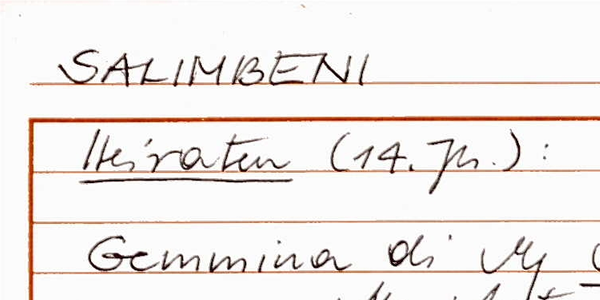 SALIMBENI
Heiraten (14. Jh.):
Gemmina di